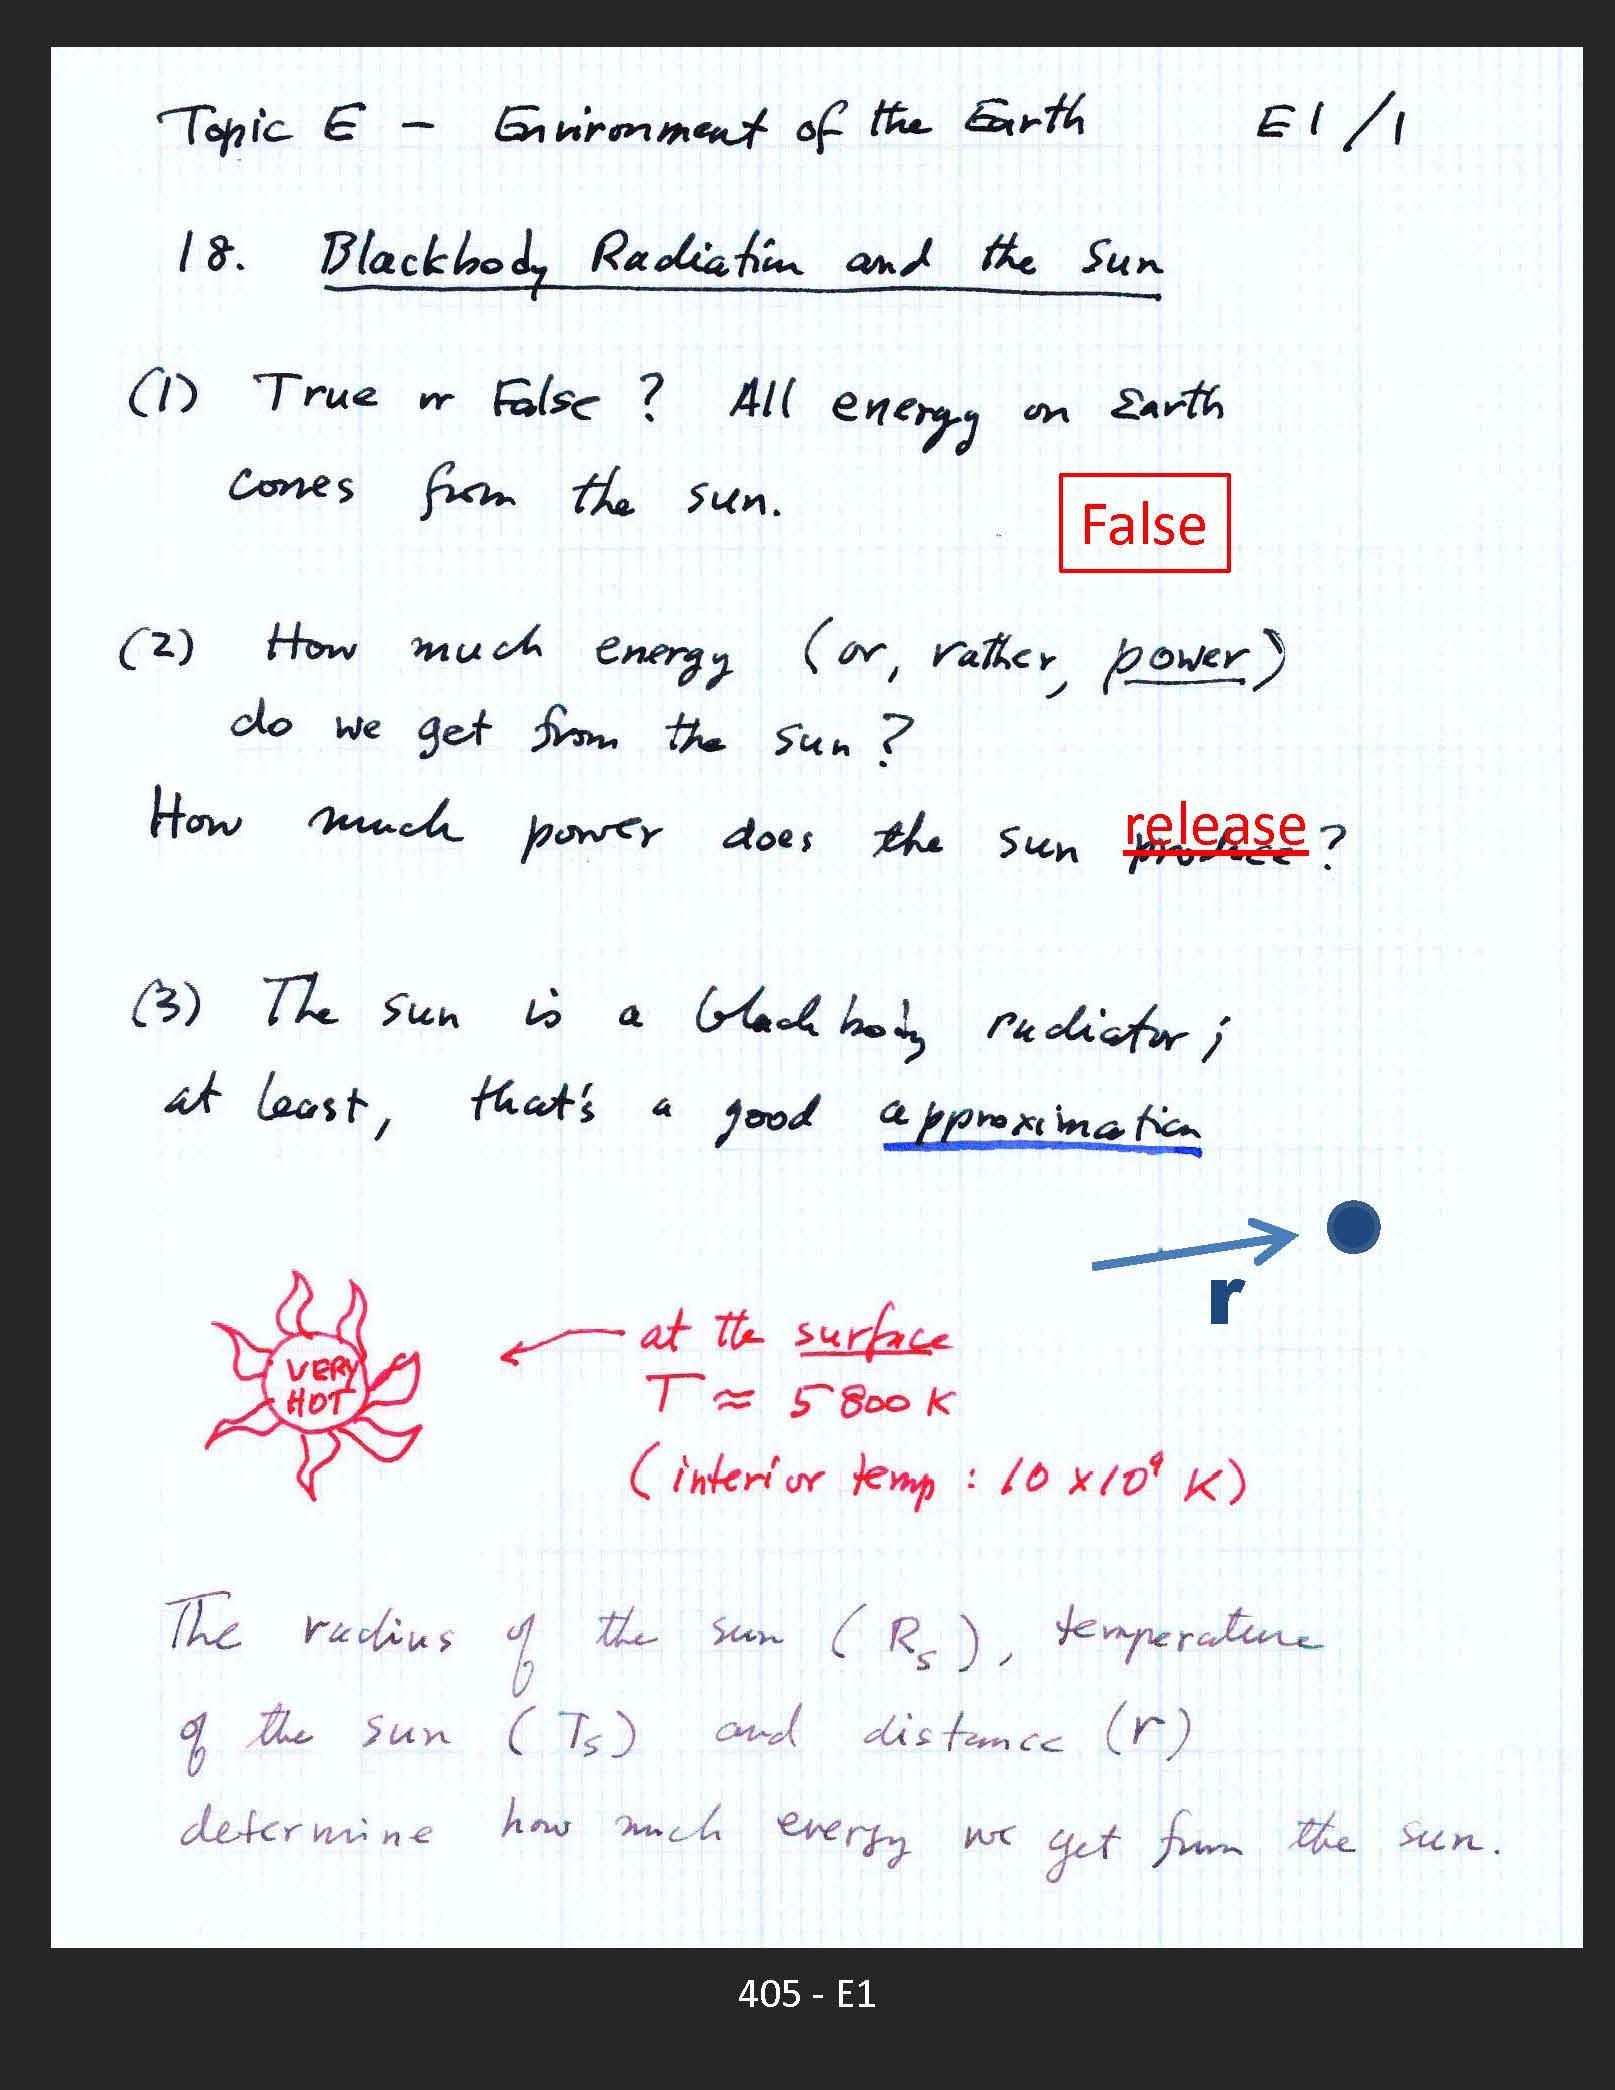 Topic E - Environment of the Earth E1/1
18. Blackbody Radiation and the Sun
(1) True or False? All energy on Earth
comes from the sun.
False
(2) How much energy (or, rather, power)
do we get from the sun?
How much power does the sun produce release?
(3) The sun is a blackbody radiator;
at least, that's a good approximation
r
VERY
HOT
at the surface
T ≈ 5800 K
(interior temp: 10 x 10⁹ K)
The radius of the sun (Rₛ), temperature
of the sun (Tₛ) and distance (r)
determine how much energy we get from the sun.
405 - E1